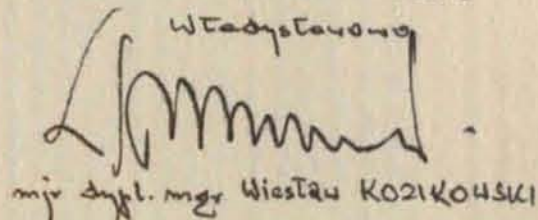 Władysławowo
mjr dypl. mgr Wiesław KOZIKOWSKI